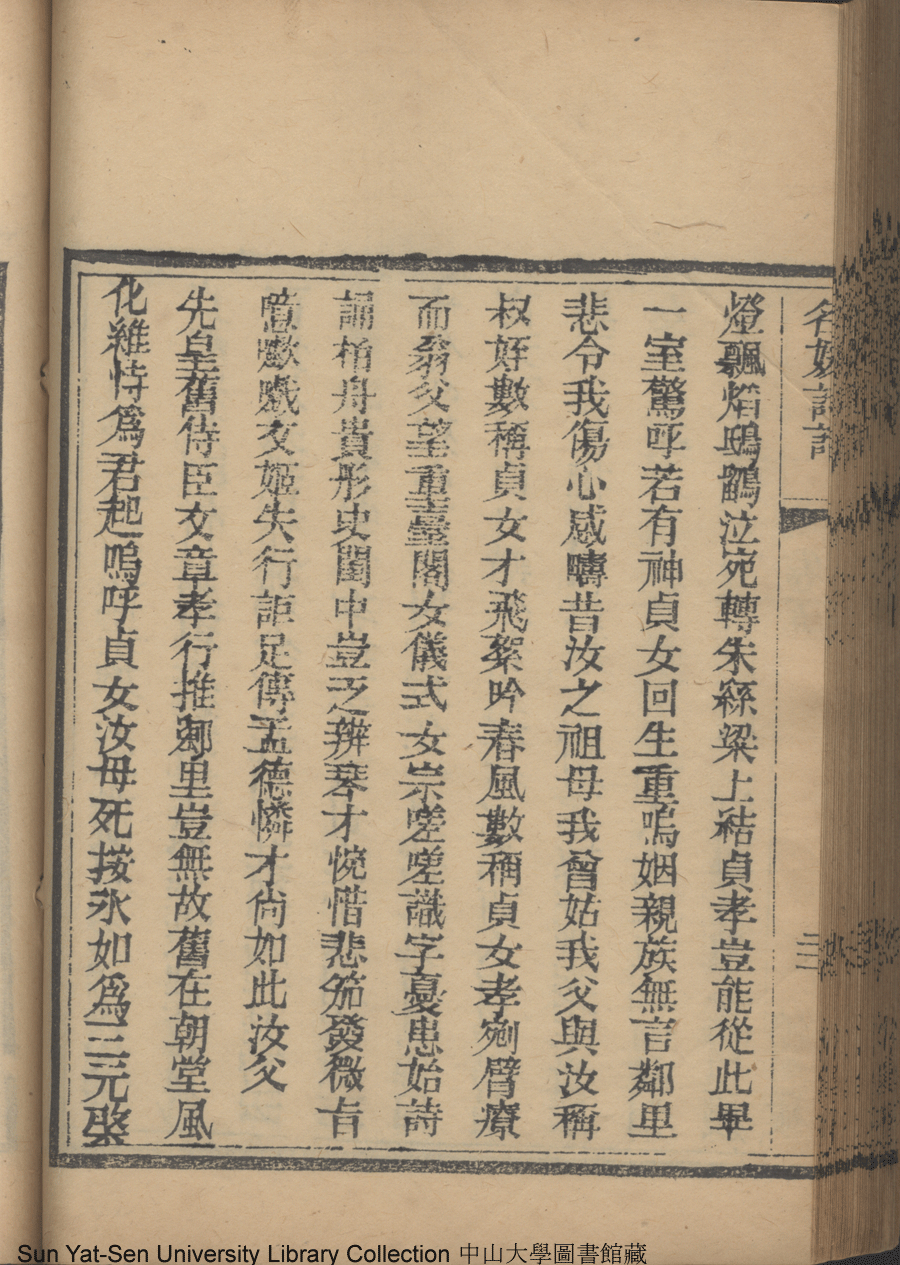 名媛詩話
三
燈飄焰鴟鶹泣宛轉朱繇梁上結貞孝豈能從此畢
一室驚呼若有神貞女回生重嗚姻親族無言鄰里
悲令我傷心感疇昔汝之祖母我曾姑我父與汝稱
叔好數稱貞女才飛絮吟春風數稱貞女孝剜臂療
而翁父望重臺閣女儀式女宗嗟嗟識字憂患始詩
誦栢舟貴彤史閨中豈乏辨琴才惋惜悲笳發微旨
噫嚱嚱文姬失行詎足傳孟德憐才尙如此汝父
先皇舊侍臣文章孝行推鄉里豈無故舊在朝堂風
化維恃爲君起嗚呼貞女汝母死按氷如爲三元棨
Sun Yat-Sen University Library Collection 中山大學圖書館藏